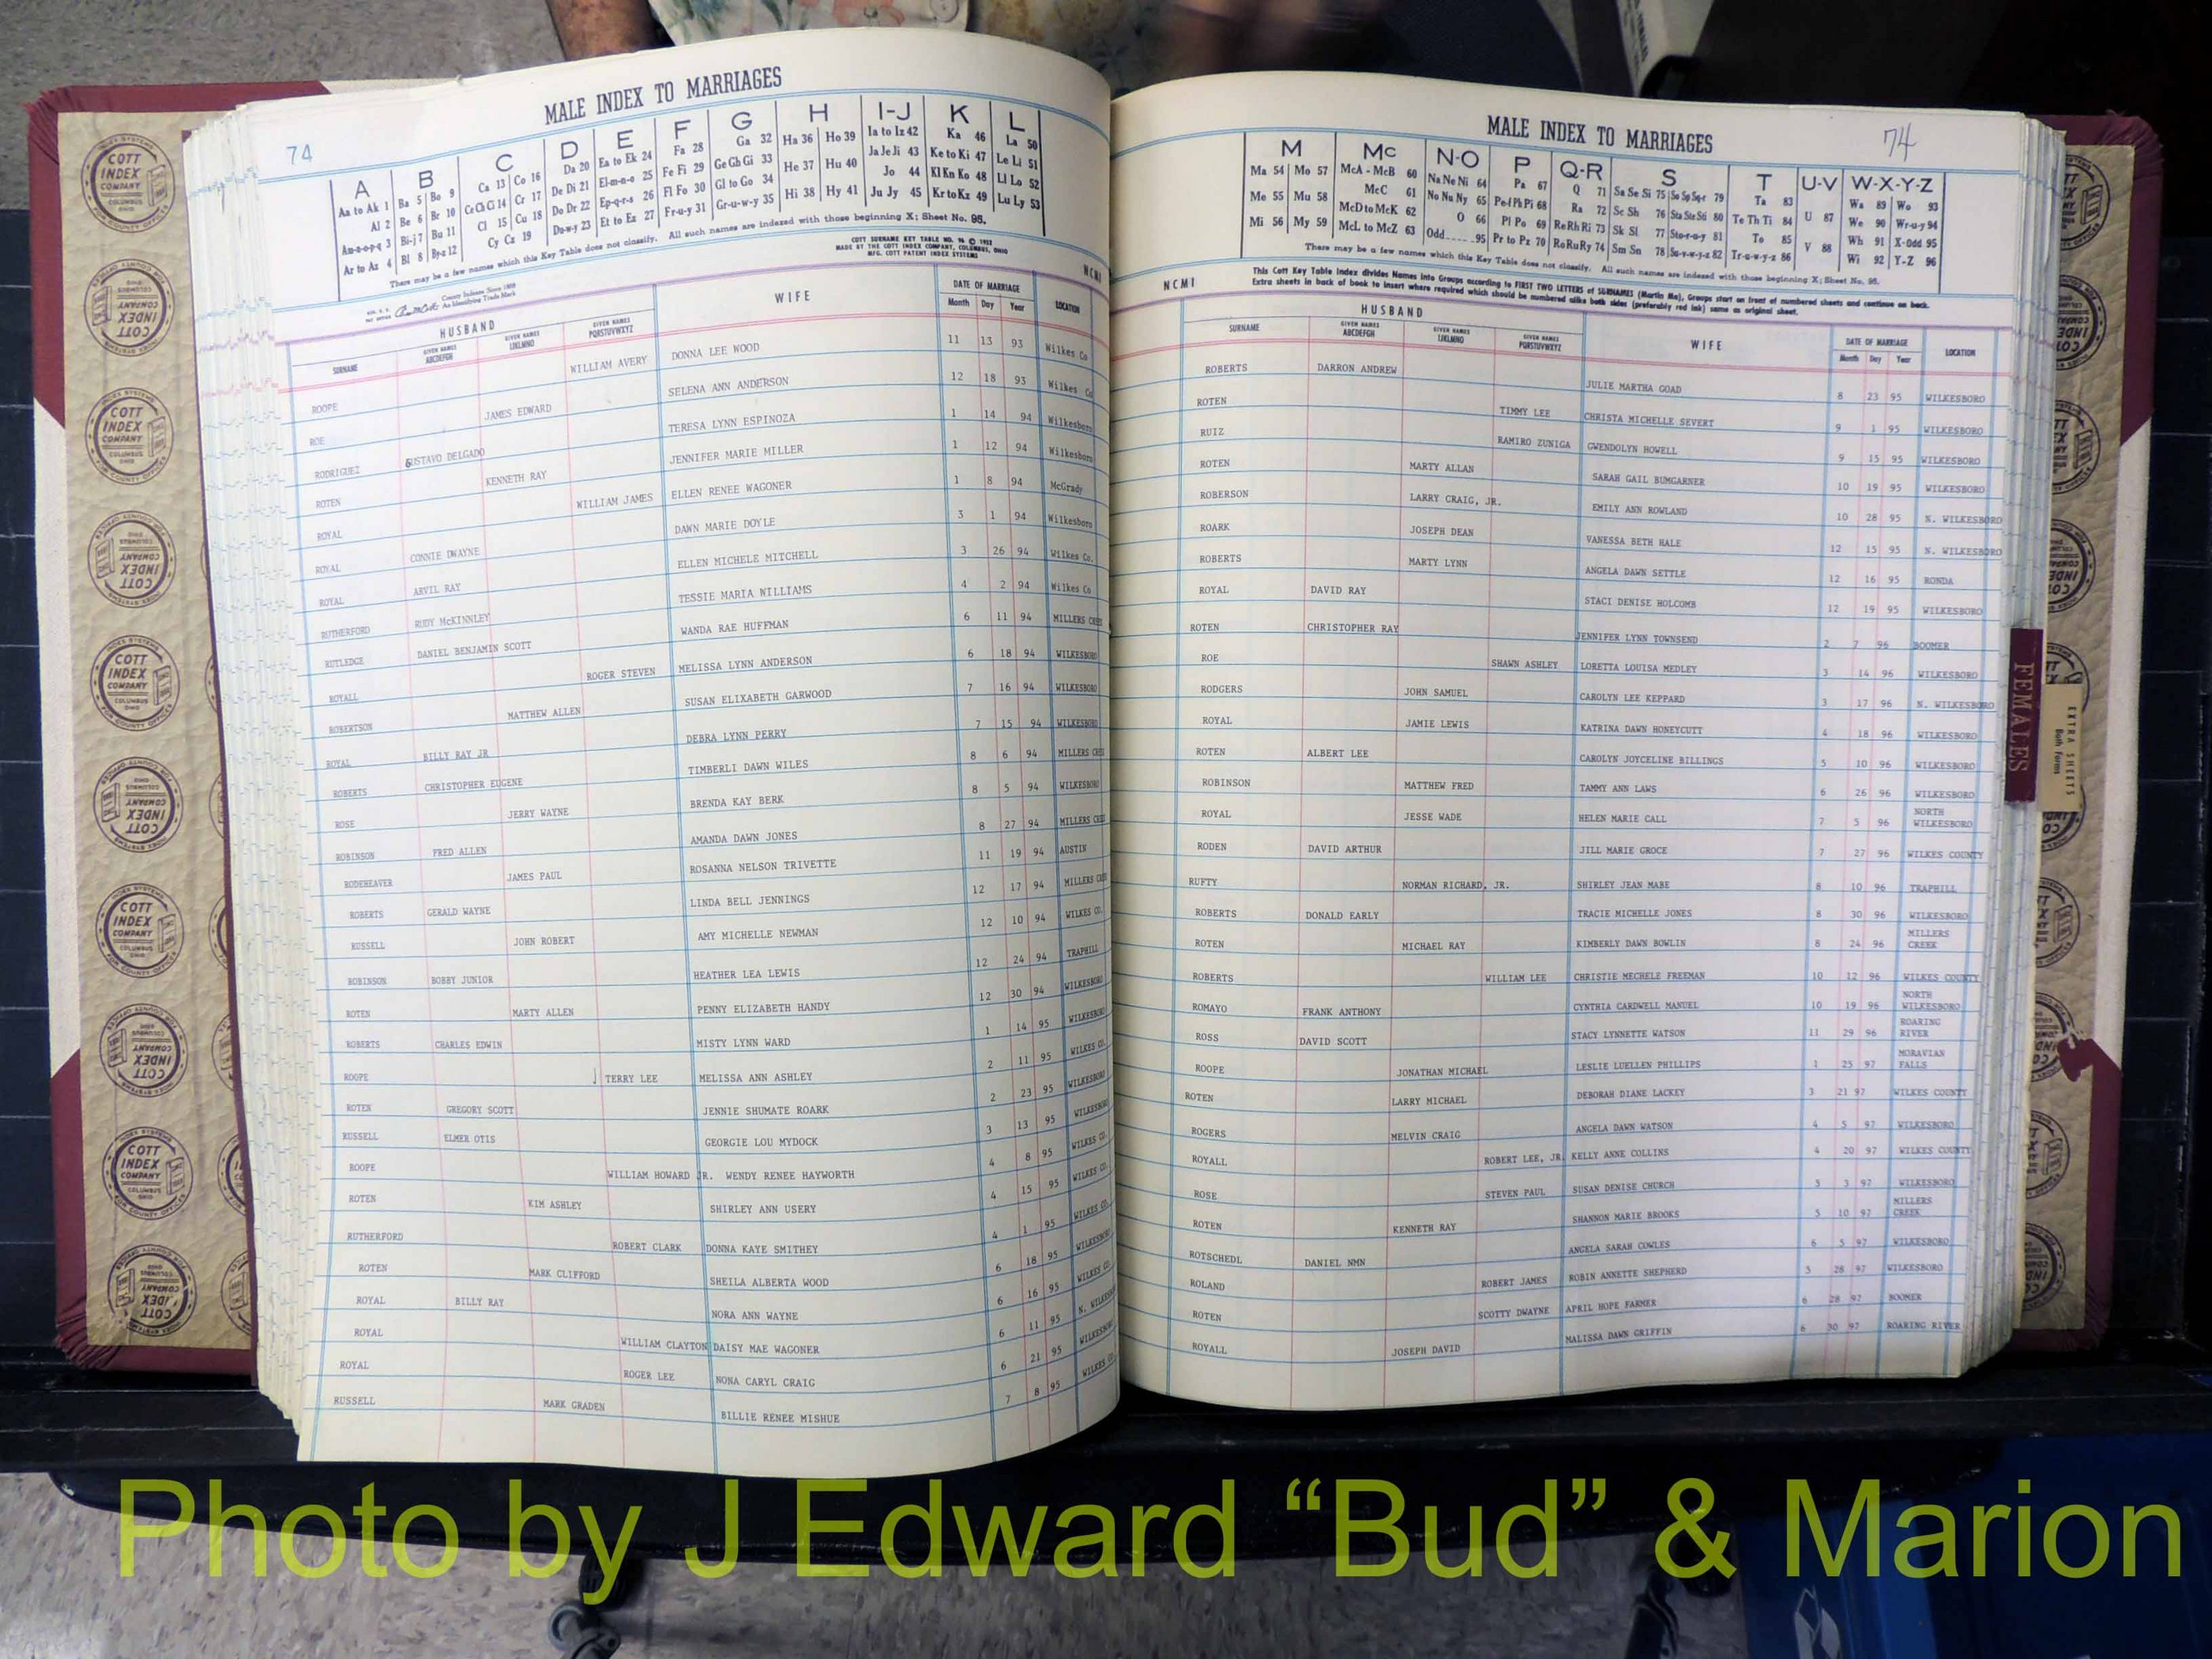 MALE INDEX TO MARRIAGES
74
A B C D E F G H I-J K L
Aa to Ak 1 Ba 5 Bo 9 Ca 13 Co 16 Da 20 Ea to Ek 24 Fa 28 Ga 32 Ha 36 Ho 39 Ia to Iz 42 Ka 46 La 50
Al 2 Be 6 Br 10 Ce Ch Ci 14 Cr 17 De Di 21 El-m-n-o 25 Fe Fi 29 Ge Gh Gi 33 He 37 Hu 40 Ja Je Ji 43 Ke to Ki 47 Le Li 51
Am-n-o-p-q 3 Bi-j 7 Bu 11 Cl 15 Cu 18 Do Dr 22 Ep-q-r-s 26 Fl Fo 30 Gl to Go 34 Hi 38 Hy 41 Jo 44 Kl Kn Ko 48 Ll Lo 52
Ar to Az 4 Bl 8 By-z 12 Cy Cz 19 Du-w-y 23 Et to Ez 27 Fr-u-y 31 Gr-u-w-y 35 Ju Jy 45 Kr to Kz 49 Lu Ly 53
There may be a few names which this Key Table does not classify. All such names are indexed with those beginning X; Sheet No. 96.
COTT SURNAME KEY TABLE NO. 96 © 1952
MADE BY THE COTT INDEX COMPANY, COLUMBUS, OHIO
MFG. COTT PATENT INDEX SYSTEMS
County Indexes Since 1888
An Identifying Trade Mark
NCMI
HUSBAND WIFE DATE OF MARRIAGE LOCATION
SURNAME GIVEN NAMES ABCDEFGH GIVEN NAMES IJKLMNO GIVEN NAMES PQRSTUVWXYZ Month Day Year
ROOPE WILLIAM AVERY DONNA LEE WOOD 11 13 93 Wilkes Co
ROE JAMES EDWARD SELENA ANN ANDERSON 12 18 93 Wilkes Co
RODRIGUEZ GUSTAVO DELGADO TERESA LYNN ESPINOZA 1 14 94 Wilkesboro
ROTEN KENNETH RAY JENNIFER MARIE MILLER 1 12 94 Wilkesboro
ROYAL WILLIAM JAMES ELLEN RENEE WAGONER 1 8 94 McGrady
ROYAL CONNIE DWAYNE DAWN MARIE DOYLE 3 1 94 Wilkesboro
ROYAL ARVIL RAY ELLEN MICHELE MITCHELL 3 26 94 Wilkes Co.
RUTHERFORD RUDY McKINNLEY TESSIE MARIA WILLIAMS 4 2 94 Wilkes Co
RUTLEDGE DANIEL BENJAMIN SCOTT WANDA RAE HUFFMAN 6 11 94 MILLERS
ROYALL ROGER STEVEN MELISSA LYNN ANDERSON 6 18 94 WILKESBORO
ROBERTSON MATTHEW ALLEN SUSAN ELIXABETH GARWOOD 7 16 94 WILKESBORO
ROYAL BILLY RAY JR DEBRA LYNN PERRY 7 15 94 WILKESBORO
ROBERTS CHRISTOPHER EUGENE TIMBERLI DAWN WILES 8 6 94 MILLERS
ROSE JERRY WAYNE BRENDA KAY BERK 8 5 94 WILKESBORO
ROBINSON FRED ALLEN AMANDA DAWN JONES 8 27 94 MILLERS
RODEHEAVER JAMES PAUL ROSANNA NELSON TRIVETTE 11 19 94 AUSTIN
ROBERTS GERALD WAYNE LINDA BELL JENNINGS 12 17 94 MILLERS
RUSSELL JOHN ROBERT AMY MICHELLE NEWMAN 12 10 94 WILKES CO.
ROBINSON BOBBY JUNIOR HEATHER LEA LEWIS 12 24 94 TRAPHILL
ROTEN MARTY ALLEN PENNY ELIZABETH HANDY 12 30 94 WILKESBORO
ROBERTS CHARLES EDWIN MISTY LYNN WARD 1 14 95 WILKESBORO
ROOPE TERRY LEE MELISSA ANN ASHLEY 2 11 95 WILKES CO.
ROTEN GREGORY SCOTT JENNIE SHUMATE ROARK 2 23 95 WILKESBORO
RUSSELL ELMER OTIS GEORGIE LOU MYDOCK 3 13 95 WILKESBORO
ROOPE WILLIAM HOWARD JR. WENDY RENEE HAYWORTH 4 8 95 WILKES CO.
ROTEN KIM ASHLEY SHIRLEY ANN USERY 4 15 95 WILKES CO.
RUTHERFORD ROBERT CLARK DONNA KAYE SMITHEY 4 1 95 WILKES CO.
ROTEN MARK CLIFFORD SHEILA ALBERTA WOOD 6 18 95 WILKESBORO
ROYAL BILLY RAY NORA ANN WAYNE 6 16 95 WILKES CO.
ROYAL WILLIAM CLAYTON DAISY MAE WAGONER 6 11 95 N. WILKESBORO
ROYAL ROGER LEE NONA CARYL CRAIG 6 21 95 WILKESBORO
RUSSELL MARK GRADEN BILLIE RENEE MISHUE 7 8 95 WILKES CO.
MALE INDEX TO MARRIAGES
74
M Mc N-O P Q-R S T U-V W-X-Y-Z
Ma 54 Mo 57 McA - McB 60 Na Ne Ni 64 Pa 67 Q 71 Sa Se Si 75 So Sp Sq-r 79 Ta 83 U 87 Wa 89 Wo 93
Me 55 Mu 58 McC 61 No Nu Ny 65 Pe-f Ph Pi 68 Ra 72 Sc Sh 76 Sta Ste Sti 80 Te Th Ti 84 V 88 We 90 Wr-u-y 94
Mi 56 My 59 McD to McK 62 O 66 Pl Po 69 Re Rh Ri 73 Sk Sl 77 Sto-r-u-y 81 To 85 Wh 91 X-Odd 95
McL to McZ 63 Odd 95 Pr to Pz 70 Ro Ru Ry 74 Sm Sn 78 Su-v-w-y-z 82 Tr-u-w-y-z 86 Wi 92 Y-Z 96
There may be a few names which this Key Table does not classify. All such names are indexed with those beginning X; Sheet No. 96.
This Cott Key Table Index divides Names into Groups according to FIRST TWO LETTERS of SURNAMES (Martin Ma), Groups start on front of numbered sheets and continue on back.
Extra sheets in back of book to insert where required which should be numbered alike both sides (preferably red ink) same as original sheet.
NCMI
HUSBAND WIFE DATE OF MARRIAGE LOCATION
SURNAME GIVEN NAMES ABCDEFGH GIVEN NAMES IJKLMNO GIVEN NAMES PQRSTUVWXYZ Month Day Year
ROBERTS DARRON ANDREW JULIE MARTHA GOAD 8 23 95 WILKESBORO
ROTEN TIMMY LEE CHRISTA MICHELLE SEVERT 9 1 95 WILKESBORO
RUIZ RAMIRO ZUNIGA GWENDOLYN HOWELL 9 15 95 WILKESBORO
ROTEN MARTY ALLAN SARAH GAIL BUMGARNER 10 19 95 WILKESBORO
ROBERSON LARRY CRAIG, JR. EMILY ANN ROWLAND 10 28 95 N. WILKESBORO
ROARK JOSEPH DEAN VANESSA BETH HALE 12 15 95 N. WILKESBORO
ROBERTS MARTY LYNN ANGELA DAWN SETTLE 12 16 95 RONDA
ROYAL DAVID RAY STACI DENISE HOLCOMB 12 19 95 WILKESBORO
ROTEN CHRISTOPHER RAY JENNIFER LYNN TOWNSEND 2 7 96 BOOMER
ROE SHAWN ASHLEY LORETTA LOUISA MEDLEY 3 14 96 WILKESBORO
RODGERS JOHN SAMUEL CAROLYN LEE KEPPARD 3 17 96 N. WILKESBORO
ROYAL JAMIE LEWIS KATRINA DAWN HONEYCUTT 4 18 96 WILKESBORO
ROTEN ALBERT LEE CAROLYN JOYCELINE BILLINGS 5 10 96 WILKESBORO
ROBINSON MATTHEW FRED TAMMY ANN LAWS 6 26 96 WILKESBORO
ROYAL JESSE WADE HELEN MARIE CALL 7 5 96 NORTH WILKESBORO
RODEN DAVID ARTHUR JILL MARIE GROCE 7 27 96 WILKES COUNTY
RUFTY NORMAN RICHARD, JR. SHIRLEY JEAN MABE 8 10 96 TRAPHILL
ROBERTS DONALD EARLY TRACIE MICHELLE JONES 8 30 96 WILKESBORO
ROTEN MICHAEL RAY KIMBERLY DAWN BOWLIN 8 24 96 MILLERS CREEK
ROBERTS WILLIAM LEE CHRISTIE MECHELE FREEMAN 10 12 96 WILKES COUNTY
ROMAYO FRANK ANTHONY CYNTHIA CARDWELL MANUEL 10 19 96 NORTH WILKESBORO
ROSS DAVID SCOTT STACY LYNNETTE WATSON 11 29 96 ROARING RIVER
ROOPE JONATHAN MICHAEL LESLIE LUELLEN PHILLIPS 1 25 97 MORAVIAN FALLS
ROTEN LARRY MICHAEL DEBORAH DIANE LACKEY 3 21 97 WILKES COUNTY
ROGERS MELVIN CRAIG ANGELA DAWN WATSON 4 5 97 WILKESBORO
ROYALL ROBERT LEE, JR. KELLY ANNE COLLINS 4 20 97 WILKES COUNTY
ROSE STEVEN PAUL SUSAN DENISE CHURCH 3 3 97 WILKESBORO
ROTEN KENNETH RAY SHANNON MARIE BROOKS 5 10 97 MILLERS CREEK
ROTSCHEDL DANIEL NMN ANGELA SARAH COWLES 6 5 97 WILKESBORO
ROLAND ROBERT JAMES ROBIN ANNETTE SHEPHERD 3 28 97 WILKESBORO
ROTEN SCOTTY DWAYNE APRIL HOPE FARMER 6 28 97 BOOMER
ROYALL JOSEPH DAVID MALISSA DAWN GRIFFIN 6 30 97 ROARING RIVER
FEMALES
EXTRA SHEETS
Both Forms
COTT INDEX COMPANY COLUMBUS OHIO
Photo by J Edward “Bud” & Marion